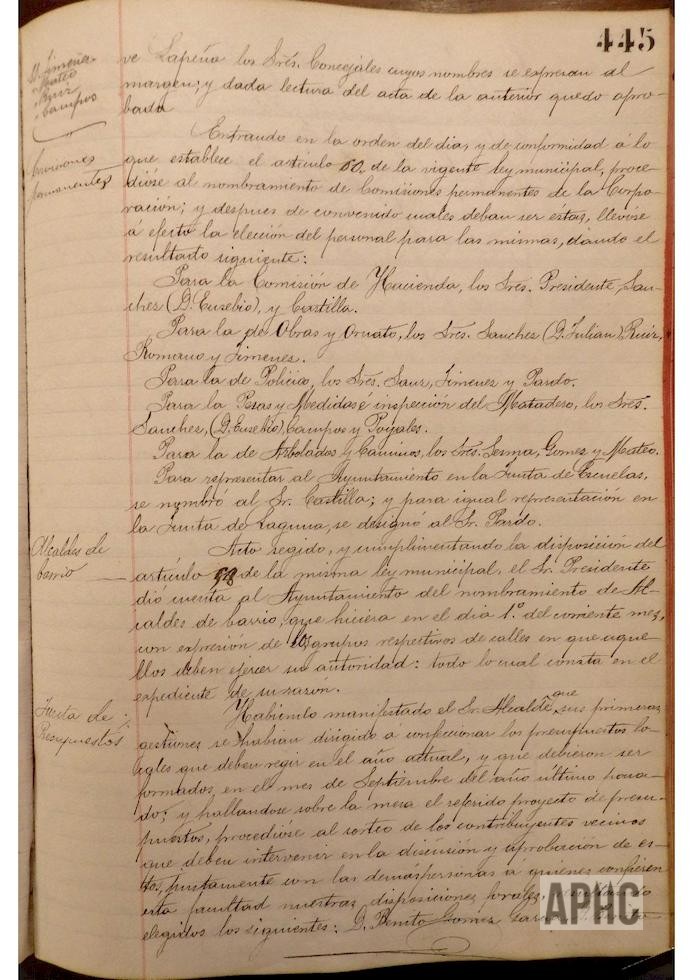 445
D. Jimenez
" Mateo
" Ruiz
" Campos
ve Lapeña los Srés. Concejales cuyos nombres se expresan al
margen; y dada lectura del acta de la anterior quedó apro-
bada
Comisiones
permanentes
Entrando en la orden del dia, y de conformidad á lo
que establece el artículo 60 de la vigente ley municipal, proce-
dióse al nombramiento de Comisiones permanentes de la Corpo-
ración; y despues de convenido cuales deban ser éstas, llevóse
á efecto la elección del personal para las mismas, dando el
resultado siguiente:
Para la Comisión de Hacienda, los Sres. Presidente, San-
chez (D. Eusebio), y Castilla.
Para la de Obras y Ornato, los Sres. Sanchez (D. Julian), Ruiz,
Romano y Jimenez.
Para la de Policia, los Srés. Sanz, Jimenez y Pardo.
Para la Pesas y Medidas é inspección del Matadero, los Srés.
Sanchez, (D. Eusebio), Campos y Poyales.
Para la de Arbolados y Caminos, los Srés. Sesma, Gomez y Mateo.
Para representar al Ayuntamiento en la Junta de Escuelas,
se nombró al Sr. Castilla; y para igual representación en
la Junta de Laguna, se designó al Sr. Pardo.
Alcaldes de
barrio
Acto segido, y cumplimentando la disposición del
artículo 58 de la misma ley municipal, el Sr. Presidente
dió cuenta al Ayuntamiento del nombramiento de Al-
caldes de barrio, que hiciera en el dia 1.º del corriente mes,
con expresión de los grupos respectivos de calles en que aque-
llos deben ejercer su autoridad: todo lo cual consta en el
expediente de su razón.
Junta de
Presupuestos
Habiendo manifestado el Sr. Alcalde que sus primeras
gestiones se habian dirigido a confeccionar los presupuestos lo-
cales que deben regir en el año actual, y que debieron ser
formados, en el mes de Septiembre del año ultimo pasa-
do; y hallandose sobre la mesa el referido proyecto de presu-
puestos, procedióse al sorteo de los contribuyentes vecinos
que deben intervenir en la discusión y aprobación de es-
tos, juntamente con las demás personas á quiénes confieren
esta facultad nuestras disposiciones forales,
elegidos los siguientes: D. Benito Gomez
APHC